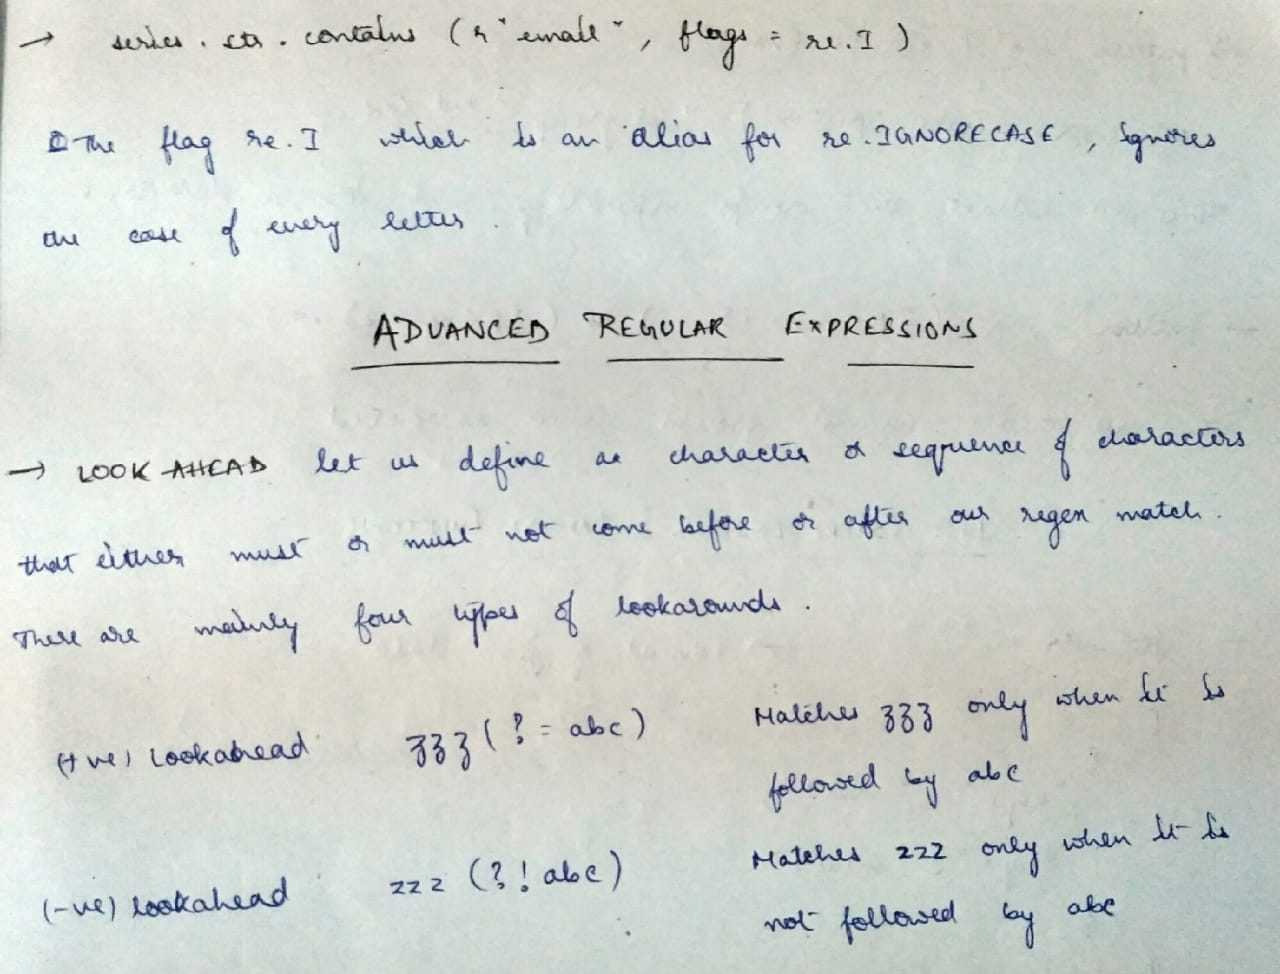 → series . str . contains ( r " email " , flags = re . I )
The flag re . I which is an alias for re . IGNORECASE , ignores
the case of every letter .
ADVANCED REGULAR EXPRESSIONS
→ LOOK AHEAD let us define a character or sequence of characters
that either must or must not come before or after our regex match .
There are mainly four types of lookarounds .
(+ve) Lookahead zzz ( ? = abc ) Matches zzz only when it is
followed by abc
(-ve) Lookahead zzz ( ? ! abc ) Matches zzz only when it is
not followed by abc